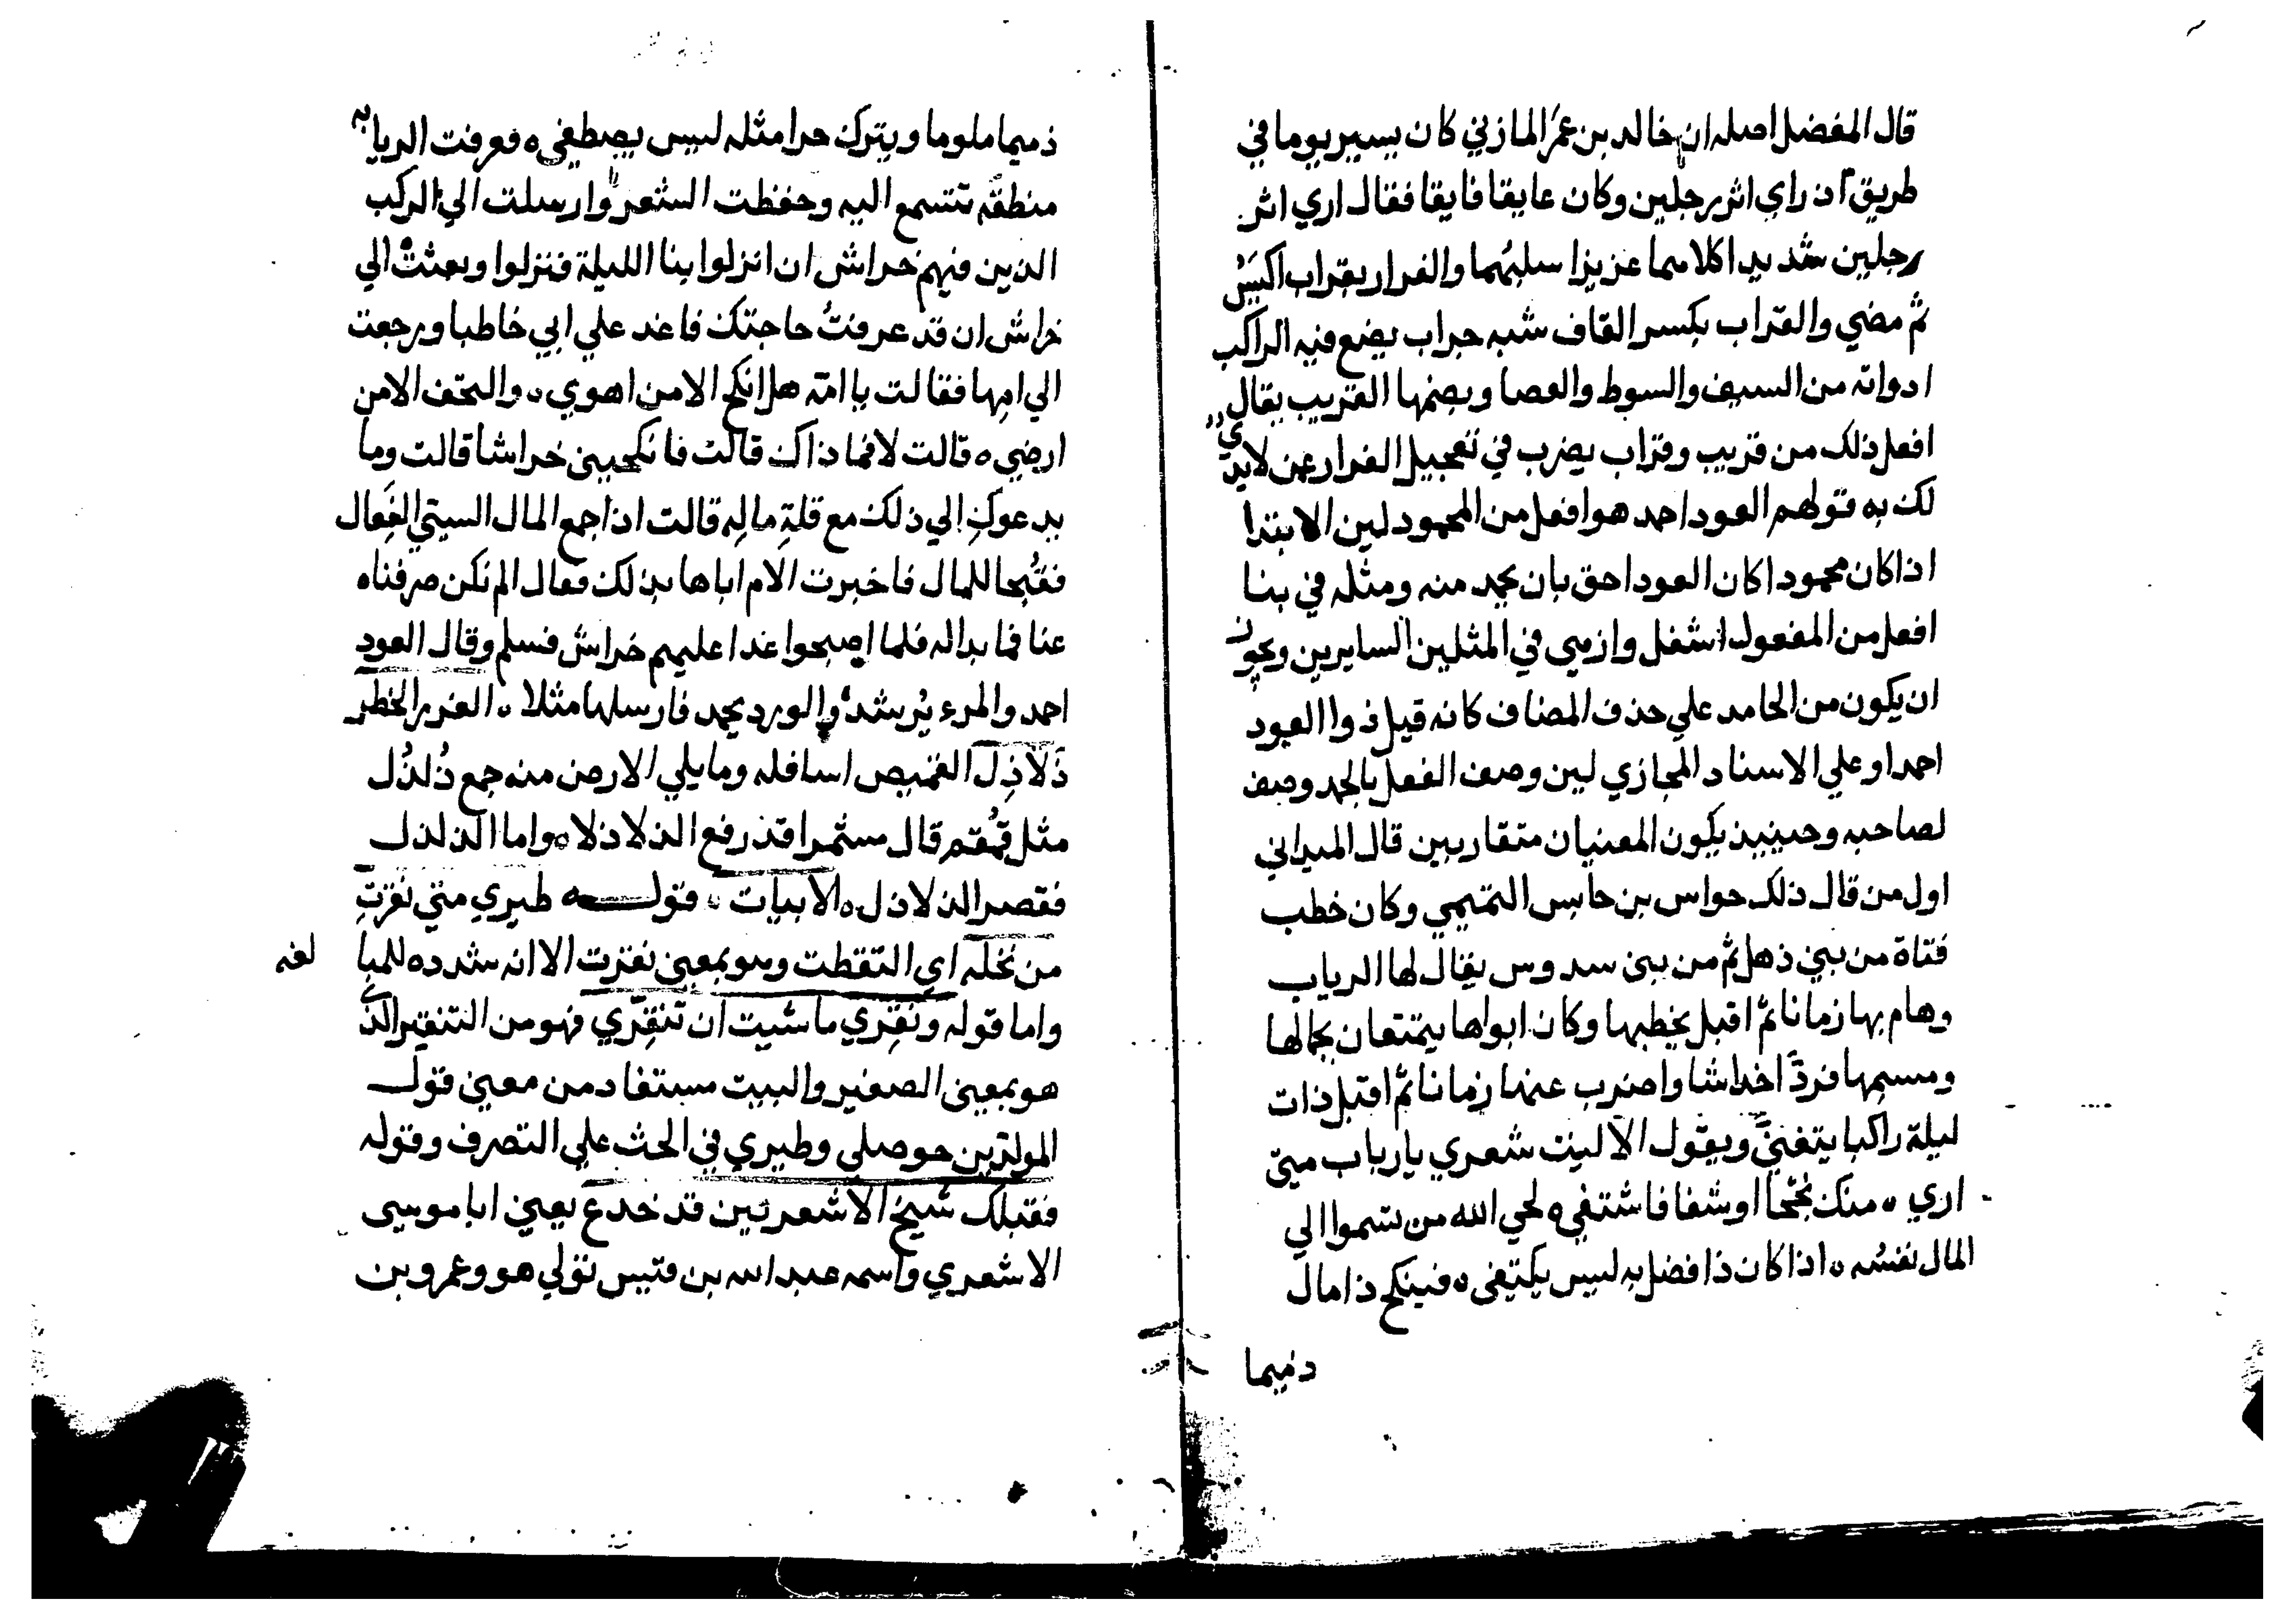 قال المفضل اصله ان خالد بن عمر المازني كان يسير يوما في
طريق اذ راي اثر رجلين وكان عايقا قايفا فقال اري اثر
رجلين شديدا كلاسما عزيزا سلبهما والفرار بقراب اكيس
ثم مضي والقراب بكسر القاف شبه جراب يضع فيه الراكب
ادواته من السيف والسوط والعصا وبضمها القريب يقال
افعل ذلك من قريب وقراب يضرب في تعجيل الفرار عن لا يدي
لك به قولهم العود احمد هو افعل من المحمود لين الابتدا
اذا كان محمودا كان العود احق بان يحمد منه ومثله في بنا
افعل من المفعول اشغل وازهي في المثلين السايرين ويجوز
ان يكون من الحامد علي حذف المضاف كانه قيل ذوا العود
احمد او علي الاسناد المجازي لين وصف الفعل بالحمد وصف
لصاحبه وحينيذ يكون المعنيان متقاربين قال الميداني
اول من قال ذلك حواس بن حابس التميمي وكان خطب
فتاة من بني ذهل ثم من بني سدوس يقال لها الرباب
وهام بها زمانا ثم اقبل يخطبها وكان ابواها يتمتعان بجمالها
ومسيمها فردا خداشا واضرب عنها زمانا ثم اقبل ذات
ليلة راكبا يتغني ويقول الا ليت شعري يا رباب متى
اري ه منك نجحا او شفا فاشتفي ه لحي الله من تسموا الي
المال نفسه ه اذا كان ذا فضل به ليس يكتفى ه فينكح ذا مال
دميما
ذميما ملوما ويترك حرا مثله ليس يصطفى ه فعرفت الربا به
منطقه تتسمع اليه وحفظت الشعر وارسلت الي الركب
الذين فيهم خراش ان انزلوا بنا الليلة فنزلوا وبعثت الي
خراش ان قد عرفت حاجتك فاغد علي ابي خاطبا ورجعت
الي امها فقالت يا امه هل انكح الا من اهوي ه والتحف الا من
ارضي ه قالت لا فما ذاك قالت فانكحيني خراشا قالت وما
يدعوك الي ذلك مع قلة ماله قالت اذا جمع المال السيي الفعال
فقبحا للمال فاخبرت الام اباها بذلك فقال الم نكن صرفناه
عنا فما بدا له فلما اصبحوا غدا عليهم خراش فسلم وقال العود
احمد والمرء يرشد والورد يحمد فارسلها مثلا ه الغرر الخطر
ذلاذل القميص اسافله وما يلي الارض منه جمع ذلذل
مثل قمقم قال مشمرا قد رفع الذلاذلا ه واما الذلذل
فقصر الذلاذل ه الابيات ه قوله طيري متي نقرت
من نخله اي التقطت وهو بمعني نقرت الا انه شدده للمبا لغه
واما قوله ونقري ما شيت ان تنقري فهو من التنقير الذي
هو بمعني الصفير والبيت مستفاد من معني قول
المولدين حوصلي وطيري في الحث علي التصرف وقوله
فقبلك شيخ الاشعريين قد خدع يعني ابا موسى
الاشعري واسمه عبد الله بن قيس تولي هو وعمرو بن